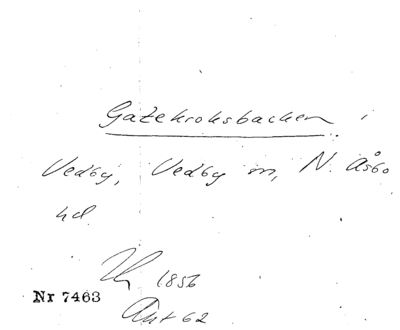 Gatekroksbacken i
Vedby, Vedby sn, N. Åsbo
hd
1856
Nr 7463
Akt 62